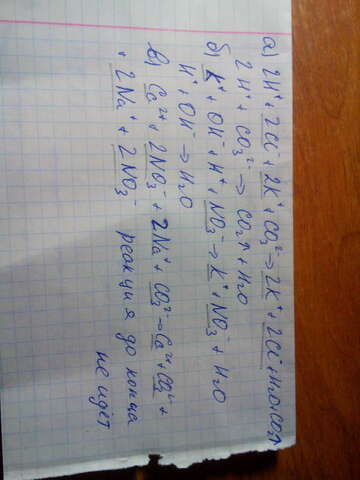 а) 2H⁺+2Cl⁻+2K⁺+CO₃²⁻→2K⁺+2Cl⁻+H₂O+CO₂↑
2H⁺+CO₃²⁻→CO₂↑+H₂O
б) K⁺+OH⁻+H⁺+NO₃⁻→K⁺+NO₃⁻+H₂O
H⁺+OH⁻→H₂O
в) Ca²⁺+2NO₃⁻+2Na⁺+CO₃²⁻→Ca²⁺+CO₃²⁻+
+2Na⁺+2NO₃⁻ реакция до конца
не идёт